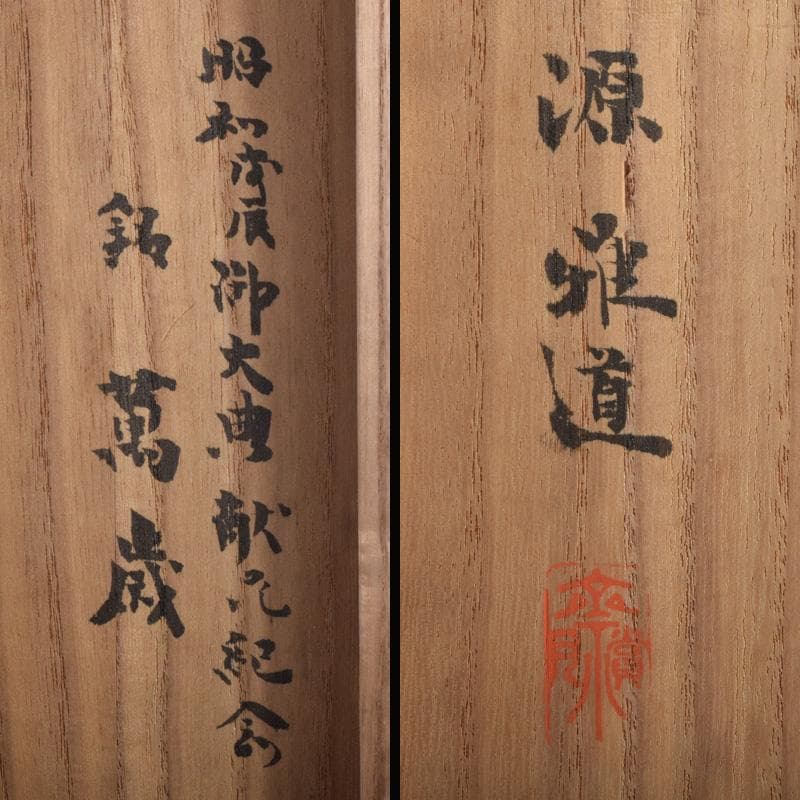 昭和戊辰御大典献花紀念
銘 萬歳
源雅道